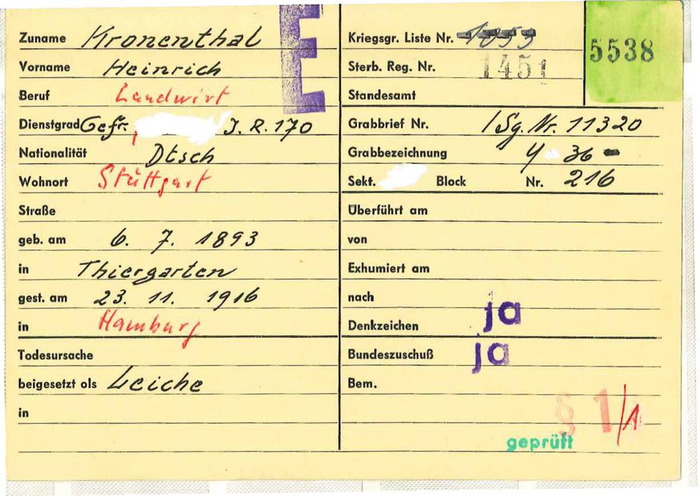 E
Zuname Kronenthal
Vorname Heinrich
Beruf Landwirt
Dienstgrad Gefr., J.R.170
Nationalität Dtsch
Wohnort Stuttgart
Straße
geb. am 6. 7. 1893
in Thiergarten
gest. am 23. 11. 1916
in Hamburg
Todesursache
beigesetzt als Leiche
in
Kriegsgr. Liste Nr.
5538
Sterb. Reg. Nr. 1451
Standesamt
Grabbrief Nr. /Sg.Nr. 11320
Grabbezeichnung Y 36
Sekt. Block Nr. 216
Überführt am
von
Exhumiert am
nach
Denkzeichen ja
Bundeszuschuß ja
Bem.
§ 1/1
geprüft